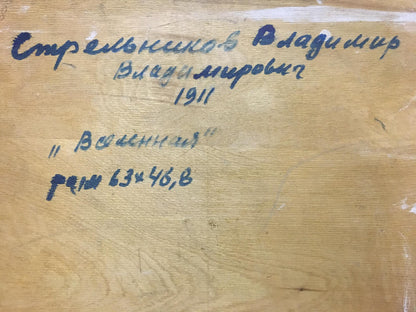 Стрельников Владимир
Владимирович
1911
„Вселенная"
разм 63×46,8